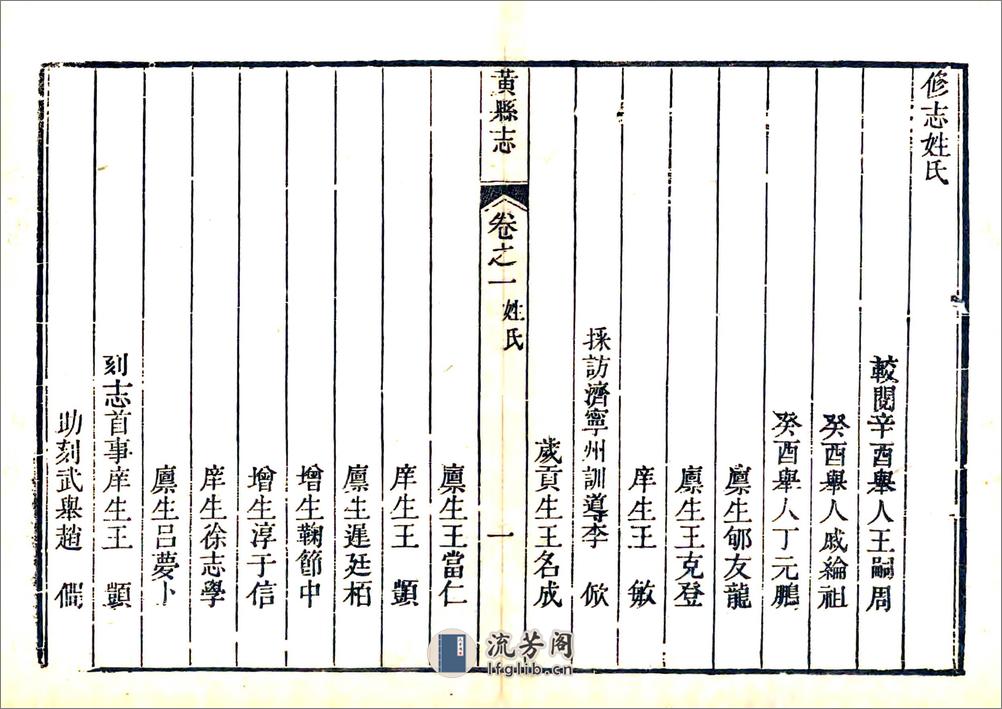 修志姓氏
較閱辛酉舉人王嗣周
癸酉舉人戚綸祖
癸酉舉人丁元鵬
廪生郇友龍
廪生王克登
庠生王　敏
採訪濟寧州訓導李　俽
歲貢生王名成
黃縣志
卷之一
姓氏
一
廪生王當仁
庠生王　顗
廪生遲廷栢
增生鞠節中
增生淳于信
庠生徐志學
廪生吕夢卜
刻志首事庠生王　顗
助刻武舉趙　僩
流芳阁
lfglib.cn